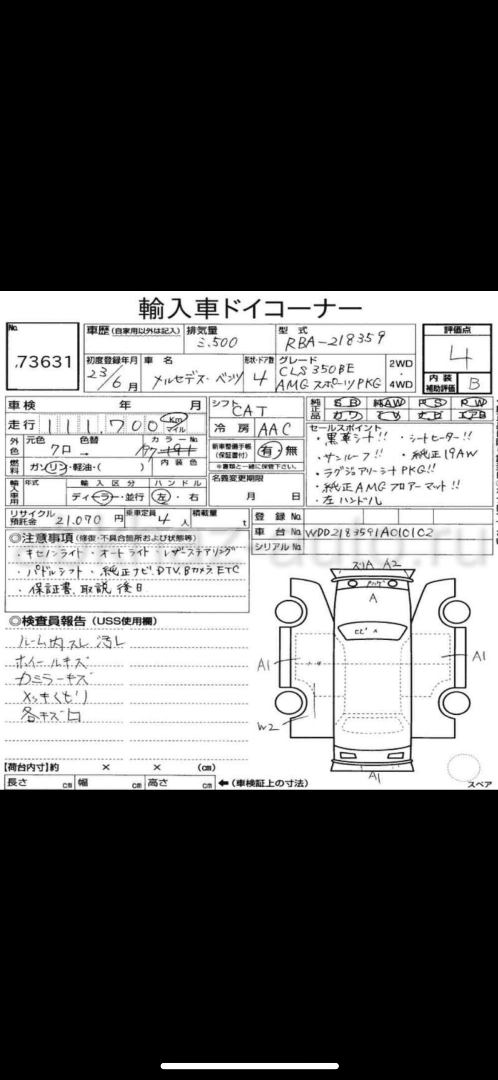 輸入車ドイコーナー
No.
73631
車歴(自家用以外は記入)
排気量
3,500
型式
RBA-218359
評価点
4
初度登録年月
23年6月
車名
メルセデス・ベンツ
形状・ドア数
4
グレード
CLS350BE
AMGスポーツPKG
2WD
・
4WD
内装
補助評価
B
車検 年 月
走行 111,700 km マイル
シフト
CAT
冷房
AAC
純正品
SR 純AW PS PW
カワ TV ナビ エアB
外色 元色 色替 カラーNo.
クロ → 197
内装色
燃料 ガソリン・軽油・( )
新車整備手帳
(保証書付)
有・無
※書類と一緒に保管下さい。
セールスポイント
・黒革シート!! ・シートヒーター!!
・サンルーフ!! ・純正19AW
・ラグジュアリーシートPKG!!
・純正AMGフロアーマット!!
・左ハンドル
輸入車用
年式 輸入区分 ハンドル
ディーラー・並行 左・右
名義変更期限
月 日
リサイクル
預託金
21,070円
乗車定員
4人
積載量
t
登録No.
車台No. WDD2183591A010102
シリアルNo.
◎注意事項(修復・不具合箇所および状態等)
・キセノンライト・オートライト・レザーステアリング
・パドルシフト・純正ナビ.DTV.Bカメラ.ETC
・保証書、取説後日
◎検査員報告(USS使用欄)
ルーム内スレ 汚レ
ホイールキズ
カミラーキズ
メッキくもり
各キズ凹
スリA A2
A
ヒビA
A1
A1
W2
A1
【荷台内寸】約 × × (cm)
長さ cm 幅 cm 高さ cm ←(車検証上の寸法)
スペア